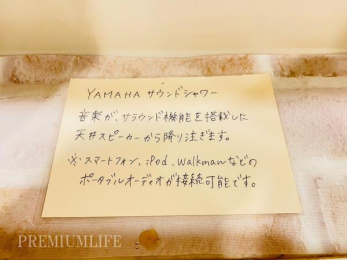 YAMAHA サウンドシャワー
音楽が、サラウンド機能を搭載した
天井スピーカーから降り注ぎます。
※スマートフォン、iPod、Walkmanなどの
ポータブルオーディオが接続可能です。
PREMIUMLIFE